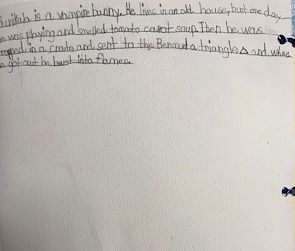 is a vampire bunny. He lives in an old house, but one day
was playing and smelled tomato carrot soup. Then he was
in a crate and sent to the Bermuda triangle △ and when
got out he burst into flames.